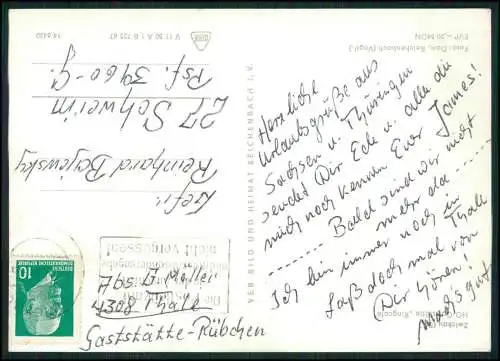 Zwickau
HO-Gaststätte "Ringcafé"
Herzliche
Urlaubsgrüße aus
Sachsen u. Thüringen
sendet Dir Ecke u. alle die
mich noch kennen Euer James!
Bald sind wir nicht
mehr da
Ich bin immer noch in
Thale
Laß doch mal von
Dir hören
mach's gut
VEB BILD UND HEIMAT REICHENBACH I. V.
Foto: Reichenbach (Vogtl.)
EVP –.20 MDN
V 11 50 A 1, B 725 67
Gefr.
Reinhard
27 Schwerin
Psf. 3960-G.
nicht vergessen!
DEUTSCHE
DEMOKRATISCHE REPUBLIK
10
Abs.
4308 Thale
Gaststätte-Rübchen